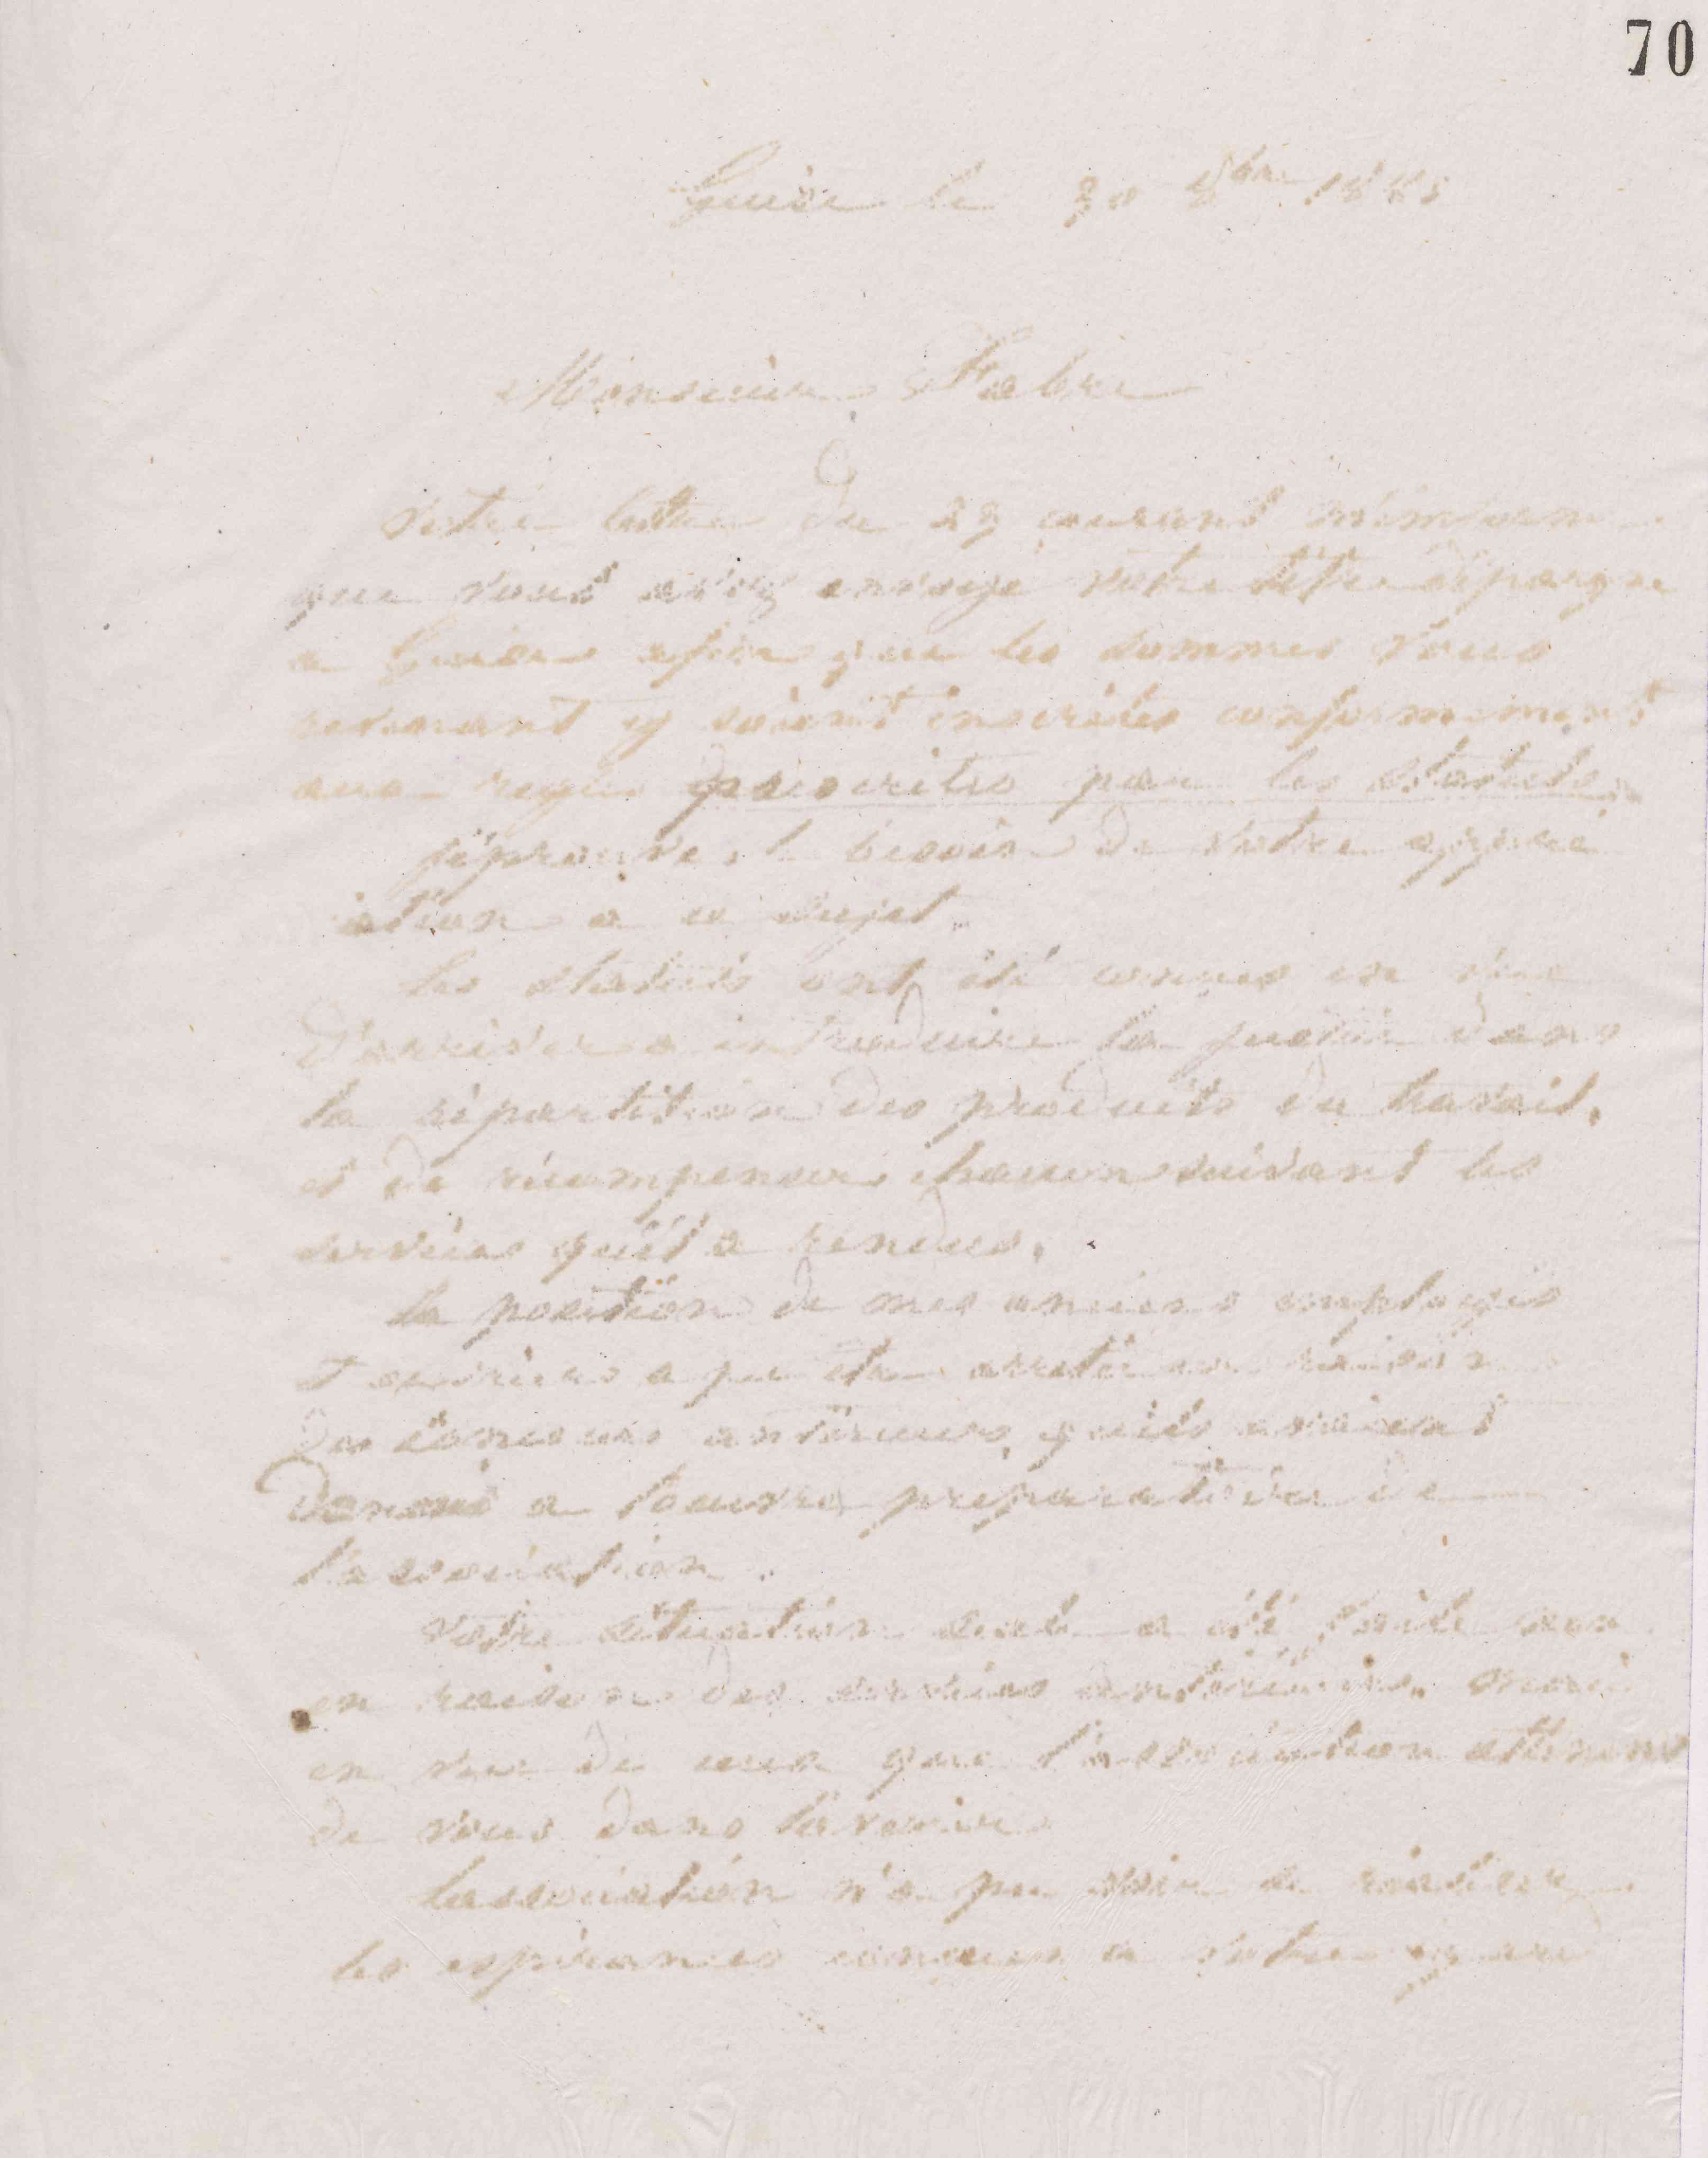 70
Guise le 30 9bre 1881
Monsieur Fabre
Votre lettre du 23 courant m'informe
que vous avez envoyé votre titre d'épargne
a Guise afin que les sommes vous
revenant y soient inscrites conformément
aux regles prescrites par les statuts.
j'éprouve le besoin de votre appréc
iation a ce sujet.
Les statuts ont été conçus en vue
d'arriver a introduire la justice dans
la répartition des produits du travail,
et de récompenser chacun suivant les
services qu'il a rendus.
la position de mes anciens employés
et ouvriers a pu être arrêtée en raison
des concours antérieurs qu'ils avaient
donnés a l'œuvre préparatoire de
l'association.
Votre situation seule a été faite non
en raison des services antérieurs, mais
en vue de ceux que l'association attend
de vous dans l'avenir.
L'association n'a pu voir se réaliser
les espérances conçues a votre égard